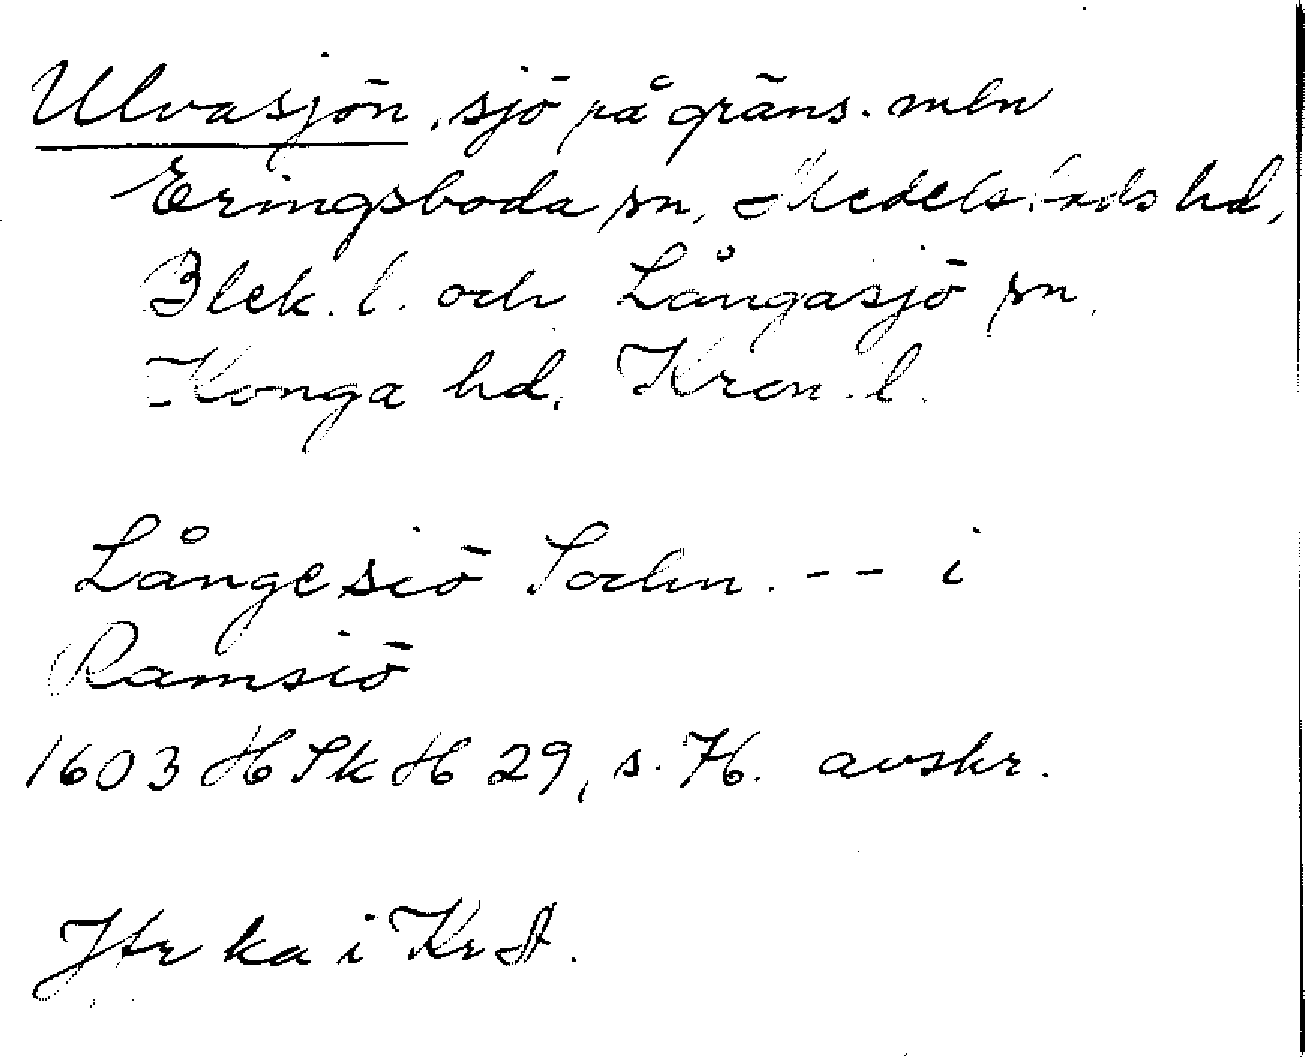 Ulvasjön, sjö på gräns. mln
Eringsboda sn, Medelstads hd,
Blek. l. och Långasjö sn,
Konga hd, Kron. l.
Långesiö Sochn. -- i
Ramsiö
1603 HSkH 29, s. 76. avskr.
Jfr ka i Kr